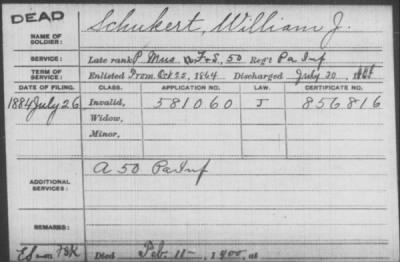 DEAD
NAME OF SOLDIER: Schukert, William J.
SERVICE: Late rank P. Mus Co. F & S, 50 Reg't Pa Inf
TERM OF SERVICE: Enlisted From Oct 22, 1864 Discharged July 30, 186
DATE OF FILING. CLASS. APPLICATION NO. LAW. CERTIFICATE NO.
1884 July 26 Invalid, 581060 J 856816
Widow,
Minor,
ADDITIONAL SERVICES: A 50 Pa Inf
REMARKS:
Died Feb. 11-, 1900, at